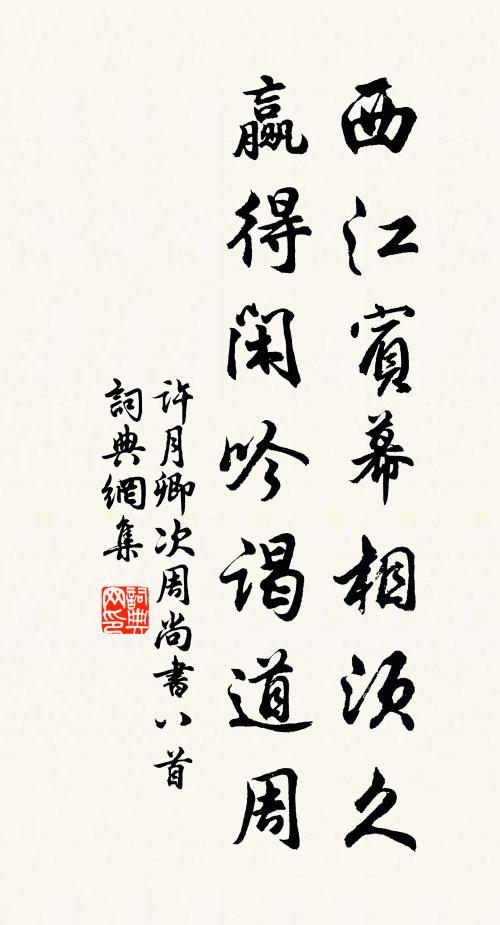 西江賓幕相須久
贏得閑吟謁道周
許月卿次周尚書八首
詞典網集
詞典网印